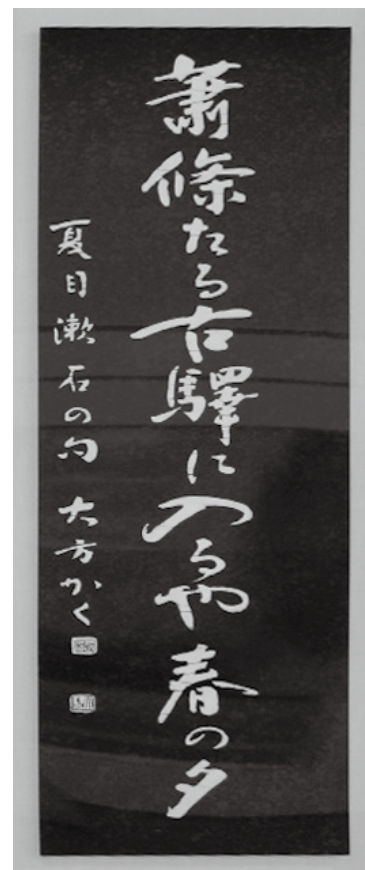 蕭條たる古驛に入るや春の夕
夏目漱石の句 大方かく